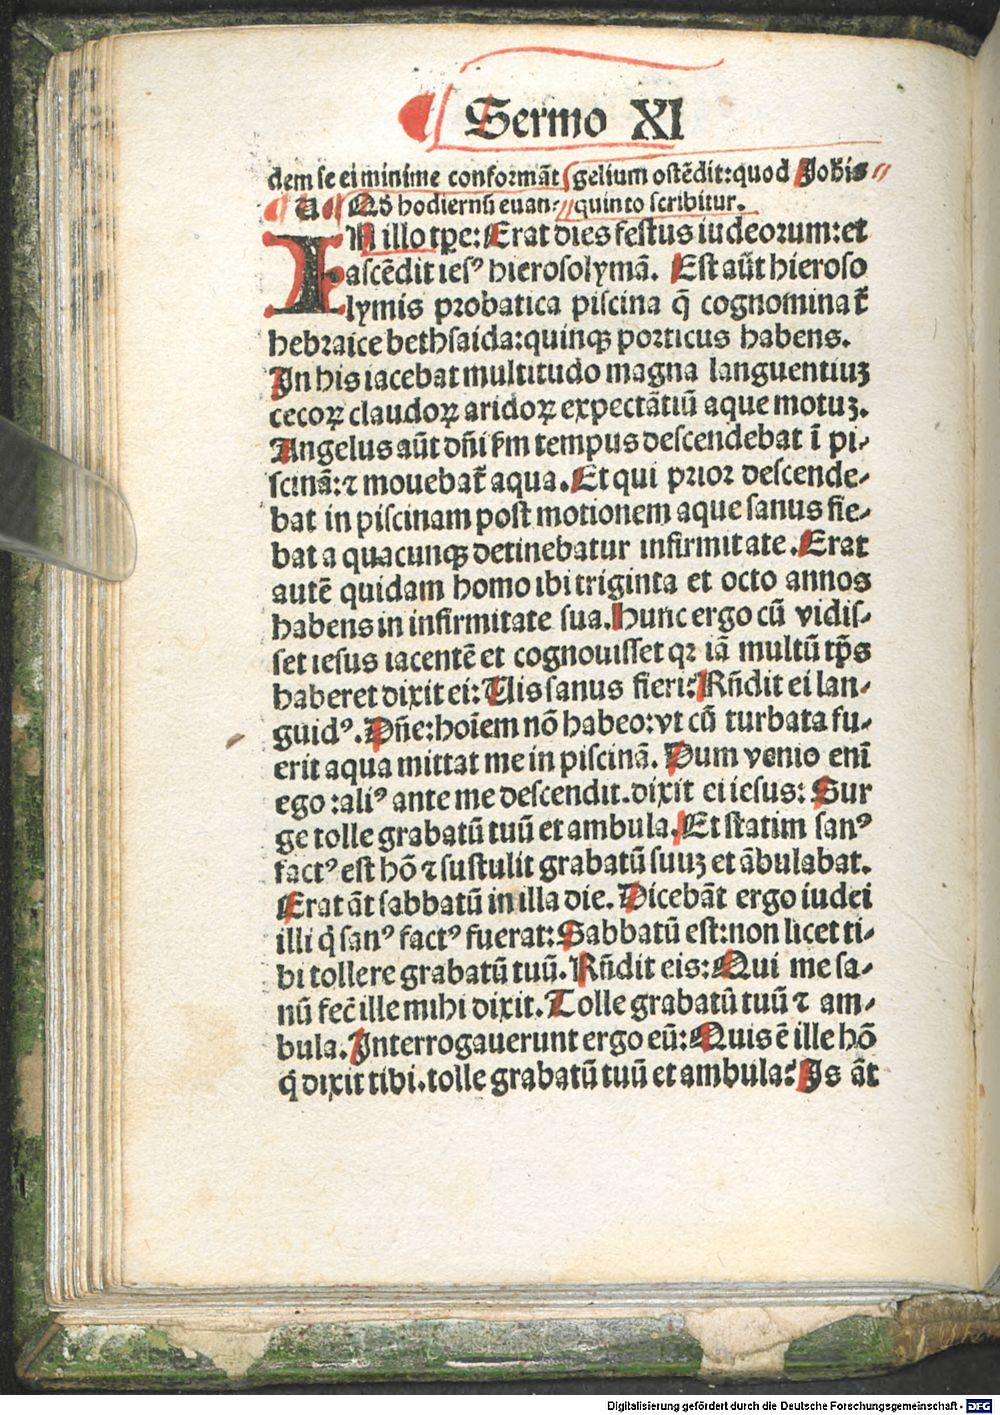 Sermo XI
dem se ei minime conformāt gelium ostēdit: quod Joh̄is
U Qđ hodierni euan⸗ quinto scribitur.
IN illo tp̄e: Erat dies festus iudeorum: et
ascēdit iesꝰ hierosolymā. Est aūt hieroso
lymis probatica piscina q̄ cognominat᷑
hebraice bethsaida: quinqꝫ porticus habens.
In his iacebat multitudo magna languentiuꝫ
cecoꝝ claudoꝝ aridoꝝ expectātiū aque motuꝫ.
Angelus aūt dn̄i ẜm tempus descendebat ī pi⸗
scinā: ⁊ mouebat᷑ aqua. Et qui prior descende⸗
bat in piscinam post motionem aque sanus fie⸗
bat a quacunqꝫ detinebatur infirmitate. Erat
autē quidam homo ibi triginta et octo annos
habens in infirmitate sua. Hunc ergo cū vidis⸗
set iesus iacentē et cognouisset qꝛ iā multū tp̄s
haberet dixit ei: Uis sanus fieri? Rn̄dit ei lan⸗
guidꝰ. Dn̄e: hoīem nō habeo: vt cū turbata fu⸗
erit aqua mittat me in piscinā. Dum venio enī
ego: aliꝰ ante me descendit. dixit ei iesus: Sur
ge tolle grabatū tuū et ambula. Et statim sanꝰ
factꝰ est hō ⁊ sustulit grabatū suuꝫ et ābulabat.
Erat āt sabbatū in illa die. Dicebāt ergo iudei
illi q̇ sanꝰ factꝰ fuerat: Sabbatū est: non licet ti⸗
bi tollere grabatū tuū. Rn̄dit eis: Qui me sa⸗
nū fec̄ ille mihi dixit. Tolle grabatū tuū ⁊ am⸗
bula. Interrogauerunt ergo eū: Quis ē ille hō
q̇ dixit tibi. tolle grabatū tuū et ambula? Is āt
Digitalisierung gefördert durch die Deutsche Forschungsgemeinschaft - DFG